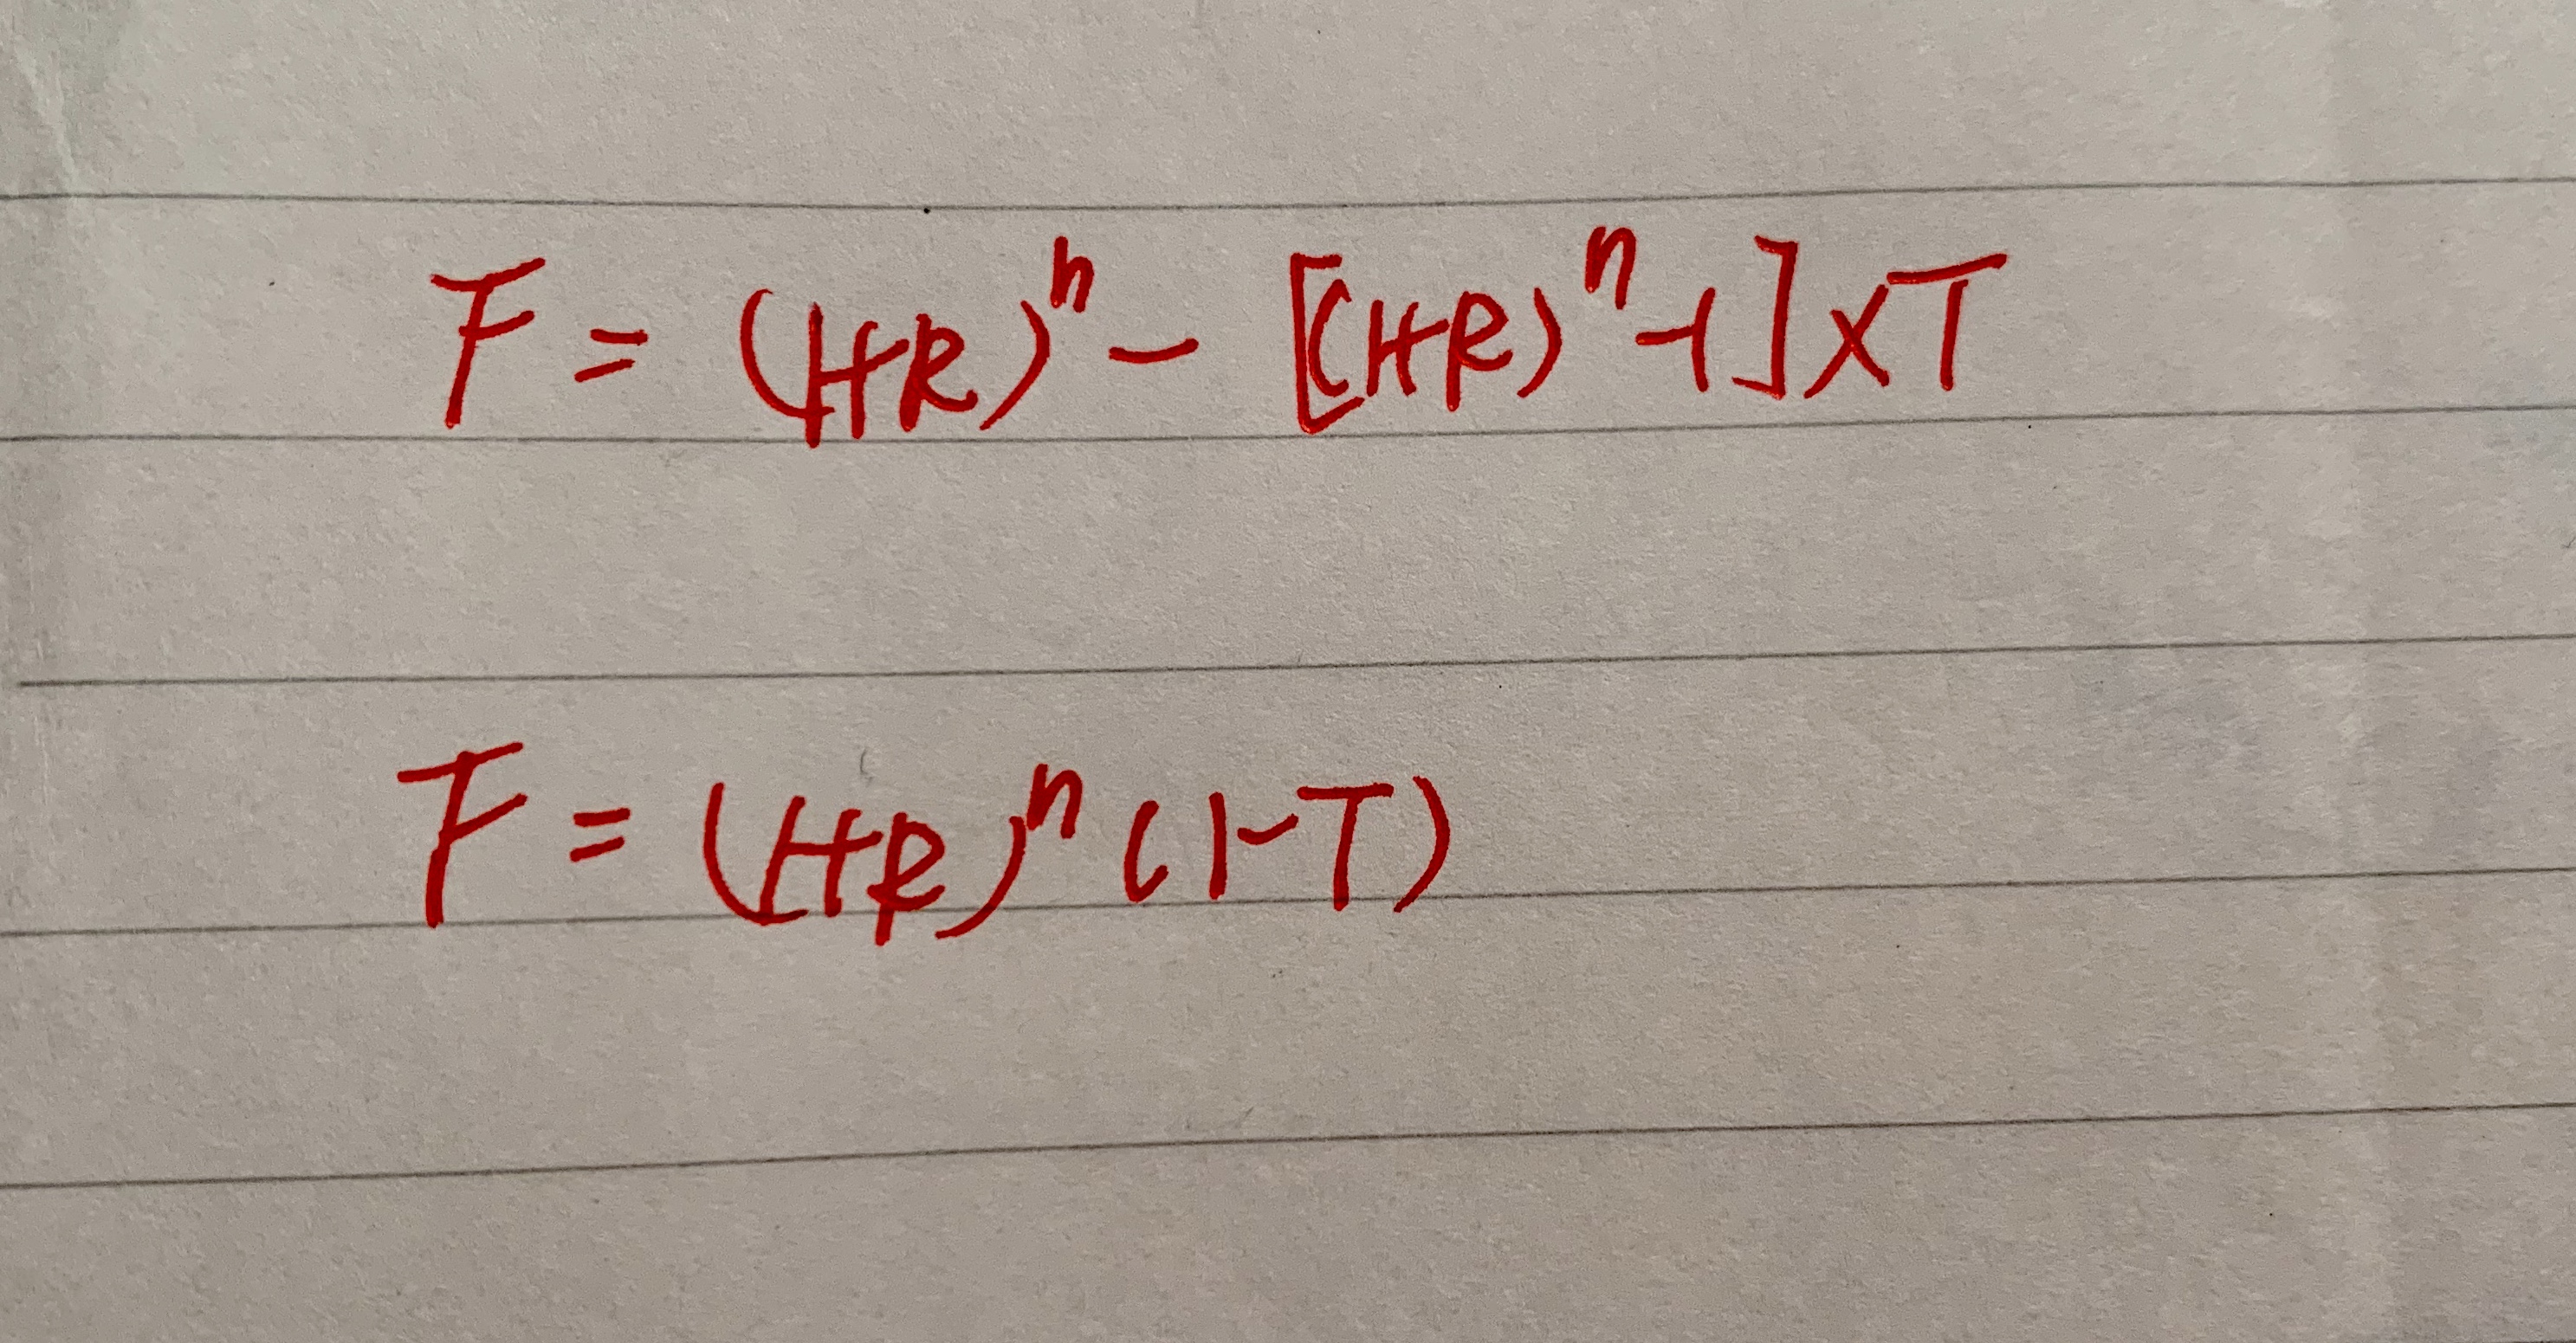 F = (1+R)ⁿ - [(1+R)ⁿ-1]×T
F = (1+R)ⁿ (1-T)